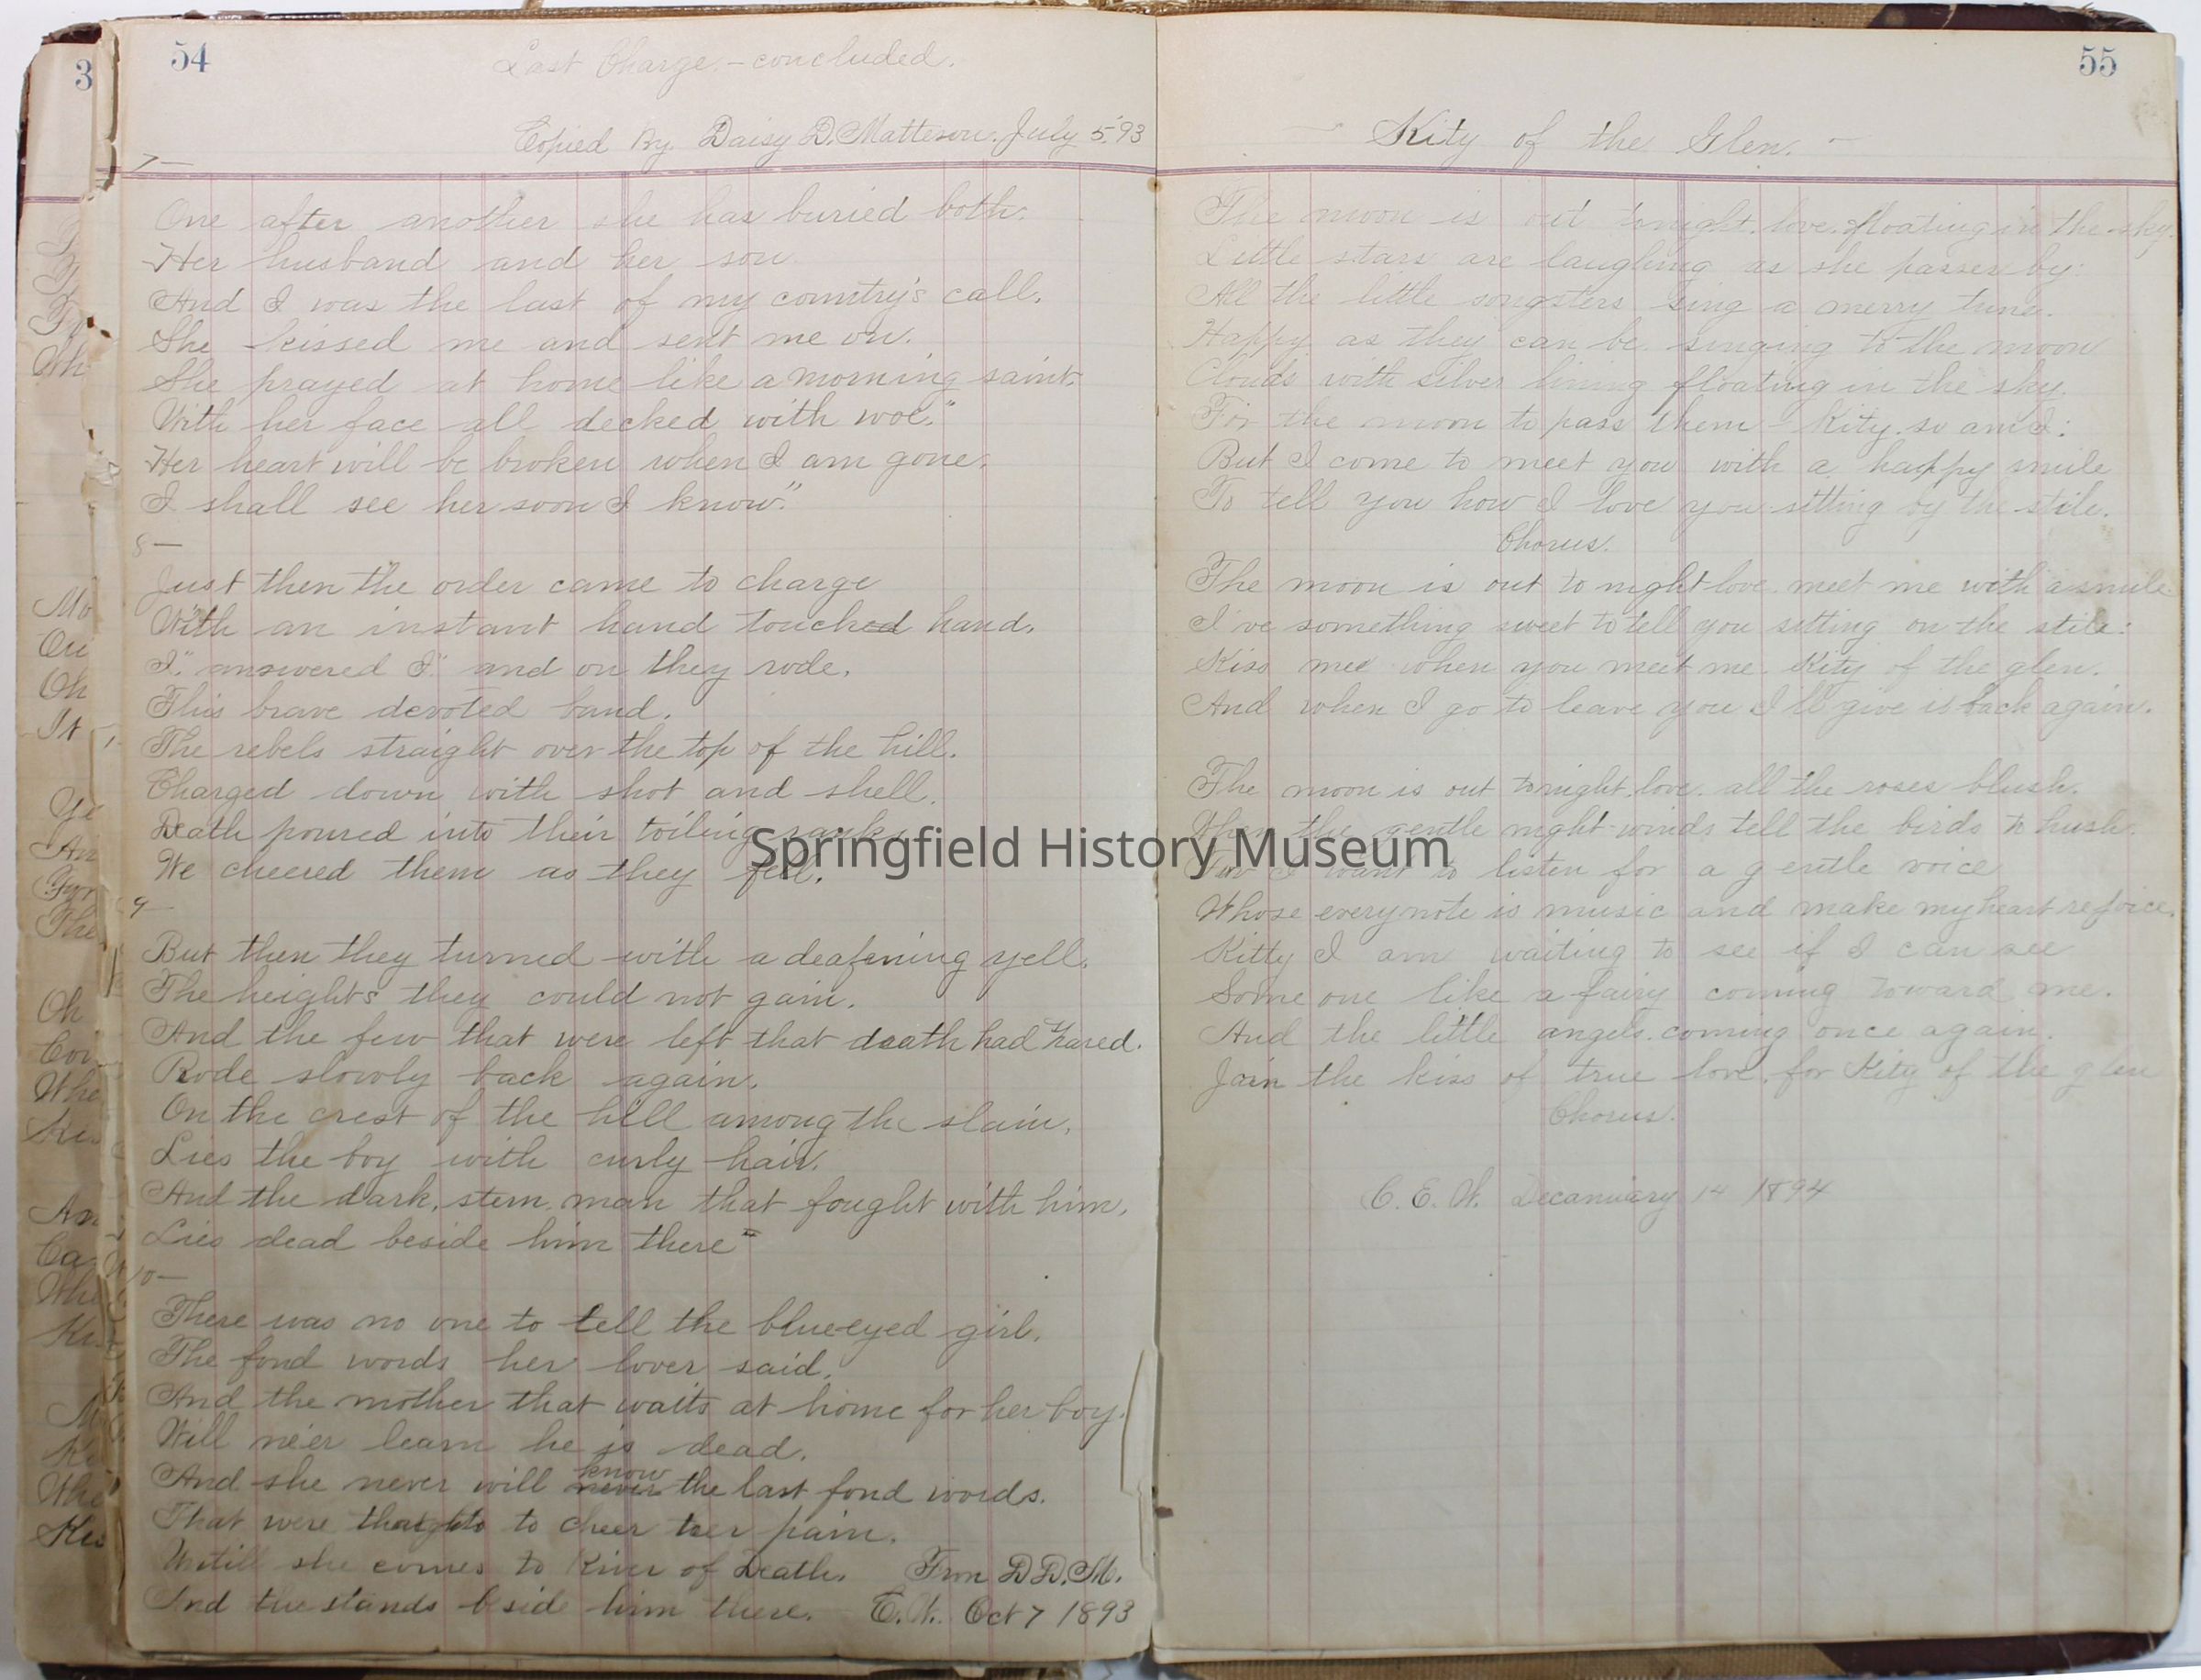 54
Last Charge.-concluded.
Copied By Daisy D. Matteson. July 5.'93
7—
One after another she has buried both.
Her husband and her son
And I was the last of my country's call.
She kissed me and sent me on.
She prayed at home like a morning saint.
With her face all decked with woe."
Her heart will be broken when I am gone.
I shall see her soon I know."
8—
Just then the order came to charge
With an instant hand touched hand.
I." answered I." and on they rode.
This brave devoted band.
The rebels straight over the top of the hill.
Charged down with shot and shell.
Death poured into their toiling ranks
We cheered them as they fell.
9—
But then they turned with a deafening yell.
The heights they could not gain.
And the few that were left that death had
Rode slowly back again.
On the crest of the hill among the slain.
Lies the boy with curly hair.
And the dark, stern, man that fought with him.
Lies dead beside him there"
10—
There was no one to tell the blue-eyed girl.
The fond words her lover said.
And the mother that waits at home for her boy.
Will ne'er learn he is dead.
know
And she never will never the last fond words.
That were thoughts to cheer her pain.
Untill she comes to River of Death. From D.D.M.
And the stands bside him there. E.W. Oct 7 1893
55
— Kity of the Glen. —
The moon is out tonight. love. floating in the sky.
Little stars are laughing as she passes by:
All the little songsters sing a merry tune.
Happy as they can be singing to the moon
Clouds with silver lining floating in the sky.
For the moon to pass them - Kity. so am I:
But I come to meet you with a happy smile
To tell you how I love you sitting by the stile.
Chorus.
The moon is out to night love meet me with a smile
I've something sweet to tell you sitting on the stile:
Kiss me when you meet me. Kity of the glen.
And when I go to leave you I'll give it back again.
The moon is out tonight. love. all the roses blush.
When the gentle night-winds tell the birds to hush.
For I want to listen for a gentle voice
Whose every note is music and make my heart rejoice.
Kitty I am waiting to see if I can see
Some one like a fairy coming toward me.
And the little angels. coming once again.
Join the kiss of true love. for Kity of the glen
Chorus.
C. E. W. Decanuary 14 1894
3
Wh
Mo
On
Oh
It
Ye
An
The
Oh
Whe
An
Ca
Whe
Springfield History Museum